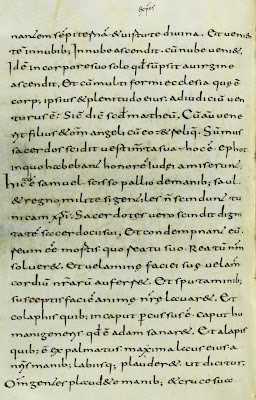 nantem sempiternã & uirtute diuina. Et ueniẽ
te in nubib; In nube ascendit. cũ nube uenit &
Idẽ in corpore suo solo qđ sũpsit a uirgine
ascendit, Et cũ multiformi ecclesia quę ẽ
corp; ipsius & plenitudo eius. ad iudiciũ uen
turus ẽ; Sic dic̃ secđ matheũ, Cũ aũ uene
rit filius & om̃s angeli cũ eo & reliq̃. Sũmus
sacerdos scidit uestimta sua hoc ẽ ephot
in quo habebant honorẽ Iudei amiserunt
hic ẽ samuel scisso pallio de manib; saul
& regno, milites igeñ ler̃ ñ scindunt tu
nicam xp̃i. Sacerdotes uero scindit digni
tatẽ sacerdoci sui, Et condempnant cũ
reum ẽẽ mortis quo reatu suo. Reatũ nr̃m
solueret. Et uelamine faciei suę uelam
cordiũ nr̃arũ auferret. Et sputaminib;
susceptis faciẽ animę nr̃ę lauaret. Et
colaphis quib; in caput peussus ẽ. caput hu
mani generis qđ ẽ adam sanaret. Et alapis
quib; ẽ expalmatus maxima laus eius a
nr̃is manib; labiisq; plauderet. ut dicitur.
Om̃s gentes plaudite manib; & cruce sua